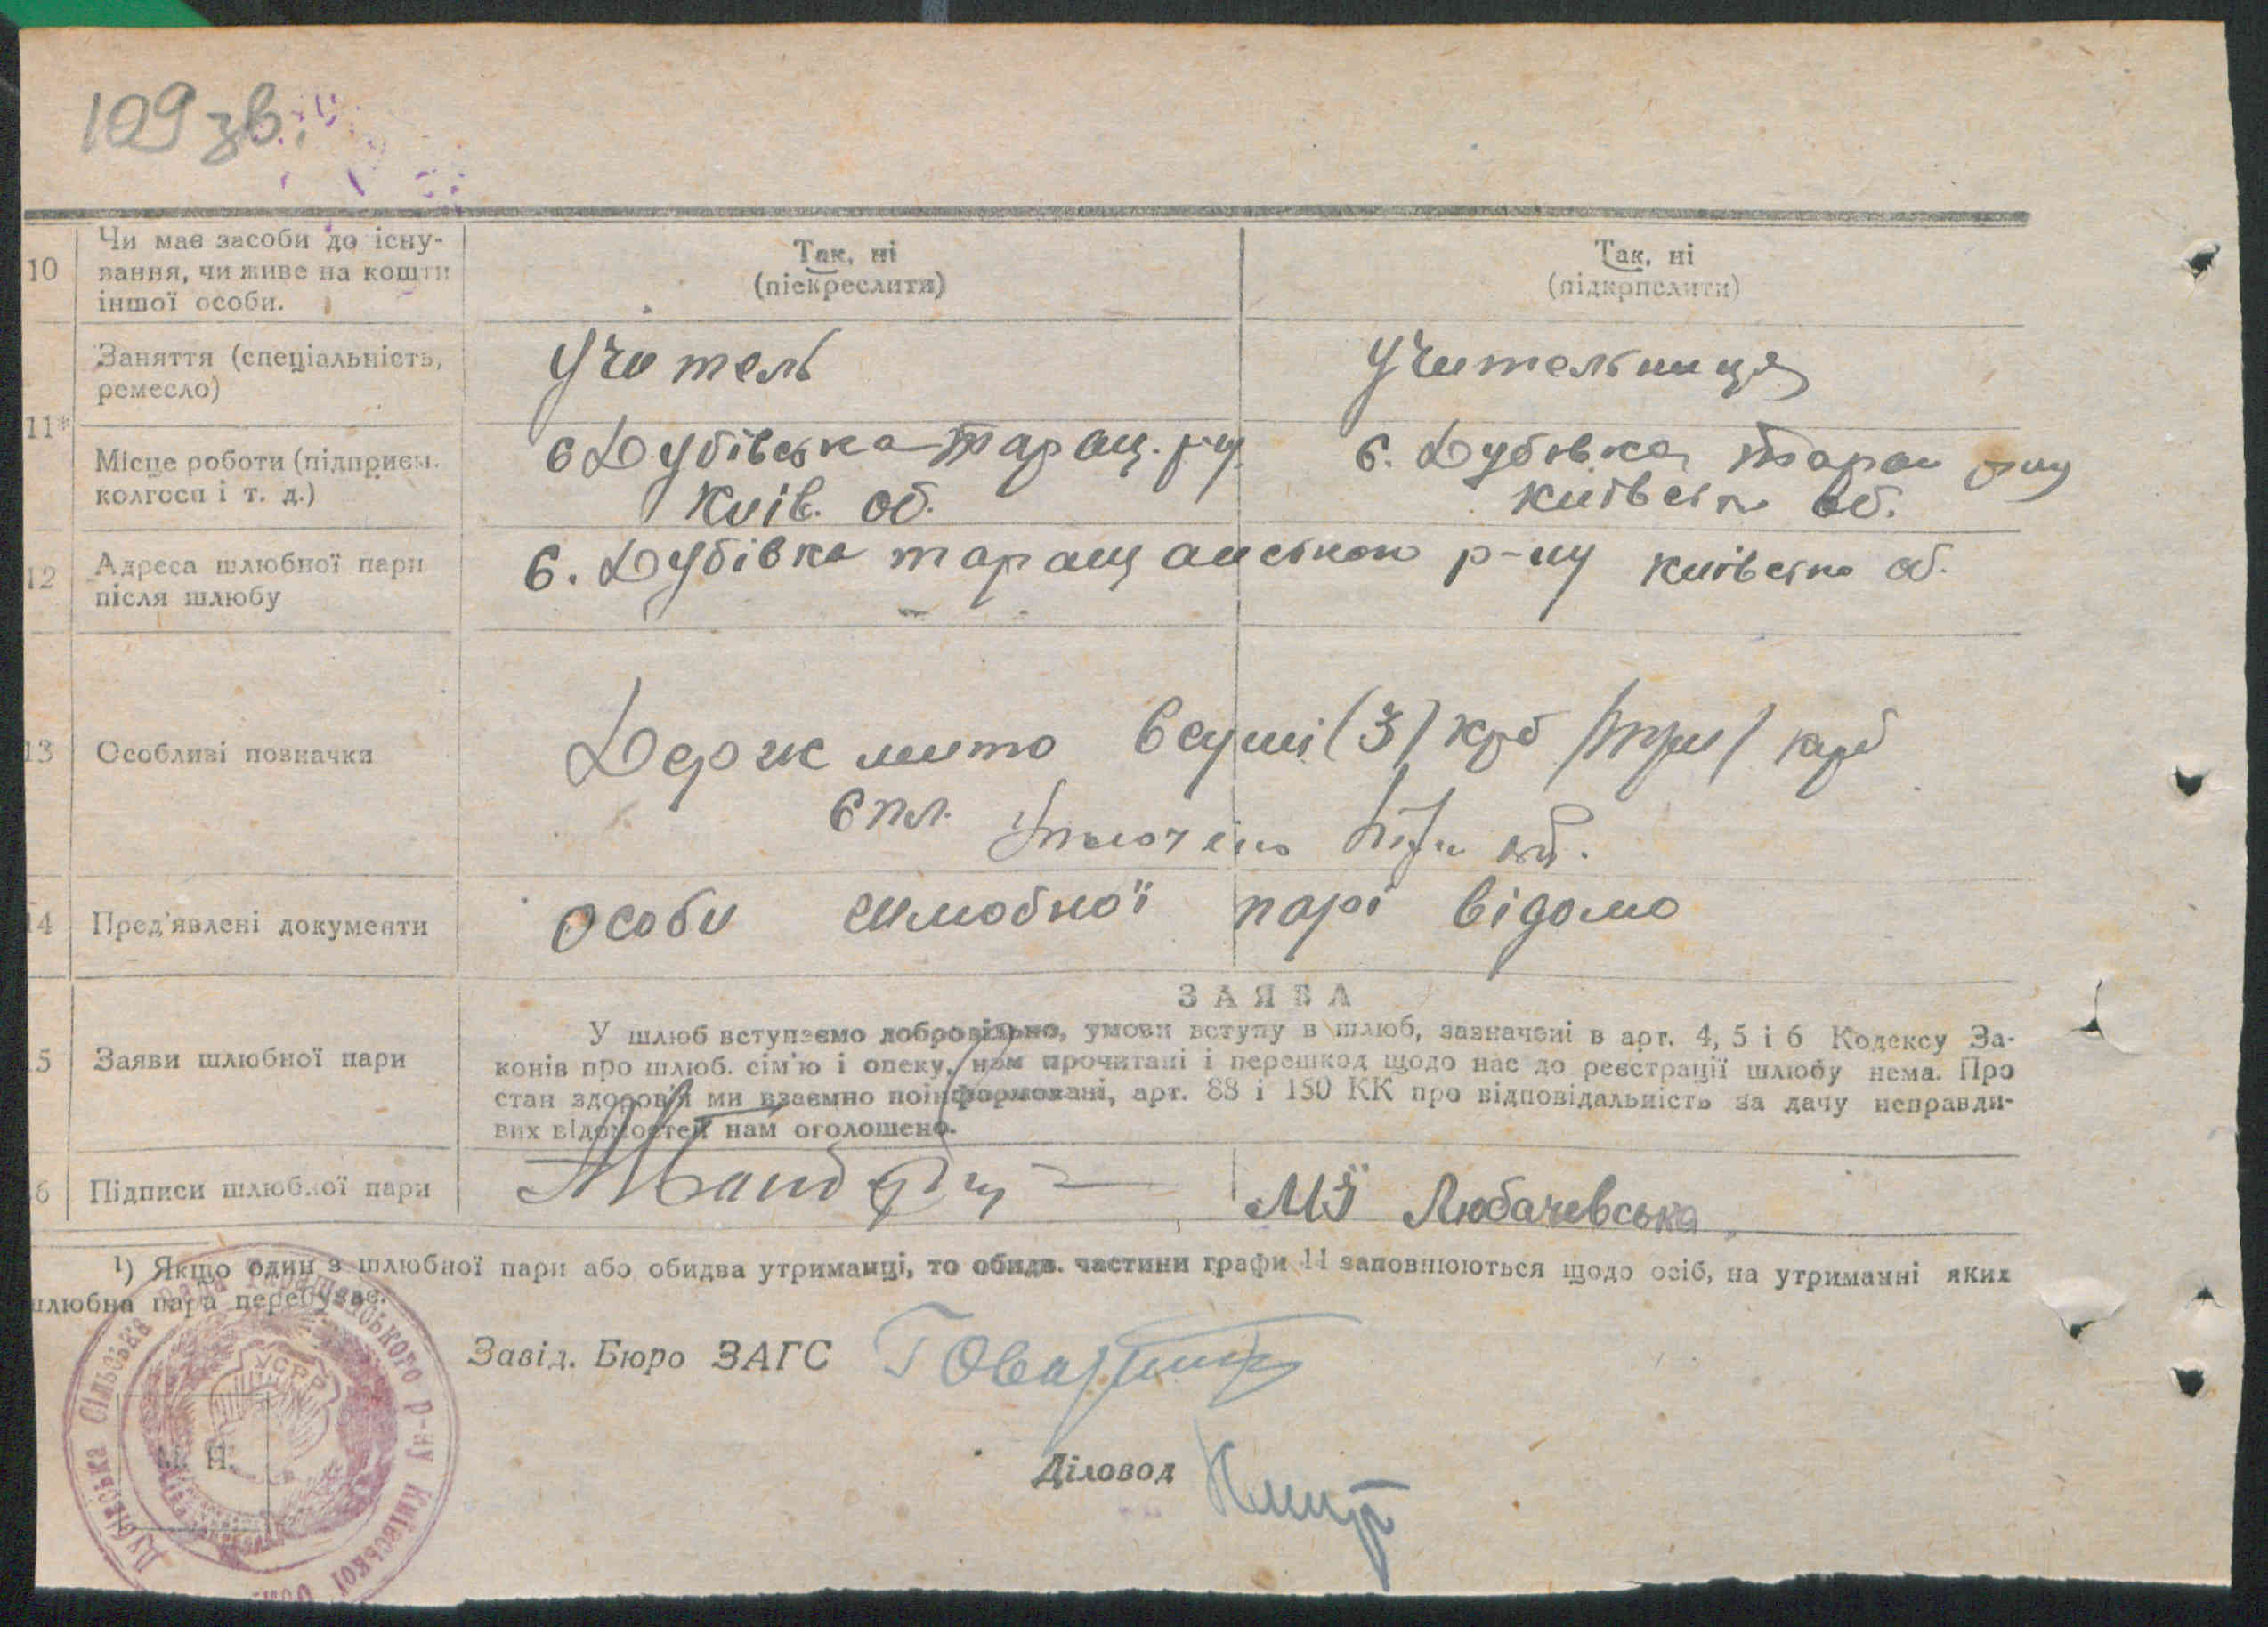 109 зв.
10 Чи має засоби до існу-
вання, чи живе на кошти
іншої особи.
Так, ні
(піскреслити)
Так, ні
(підкрпслити)
Заняття (спеціальність,
ремесло)
Учитель
Учительниця
11*
Місце роботи (підприєм.
колгосп і т. д.)
с Дубівська таращ. р-ну
Київ. об.
с. Дубівка Таращ р-ну
київськ об.
12 Адреса шлюбної пари
після шлюбу
с. Дубівка таращанского р-ну київськ об.
13 Особливі позначки
Держ мито в сумі (3) крб /три/ крб
спл.
14 Пред'явлені документи
особи шлюбної парі відомо
15 Заяви шлюбної пари
ЗАЯВА
У шлюб вступаємо добровільно, умови вступу в шлюб, зазначені в арт. 4, 5 і 6 Кодексу За-
конів про шлюб. сім'ю і опеку, нам прочитані і перешкод щодо нас до реєстрації шлюбу нема. Про
стан здоров'я ми взаємно поінформовані, арт. 88 і 150 КК про відповідальність за дачу неправди-
вих відомостей нам оголошено.
6 Підписи шлюбної пари
МЇ Любачевська
¹) Якщо один з шлюбної пари або обидва утриманці, то обидв. частини графи 11 заповнюються щодо осіб, на утриманні яких
шлюбна пара перебуває.
Завід. Бюро ЗАГС
Діловод
Дубівська Сільська Рада Таращанського р-ну Київської Обл.
УСРР
М. П.